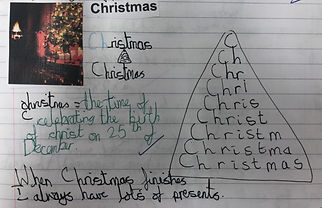 Christmas
Christmas
Christmas
christmas = the time of
celebrating the birth
of christ on 25th of
Decamber.
C
Ch
Chr
Chri
Chris
Christ
Christm
Christma
Christmas
When Christmas finishes
I always have lots of presents.